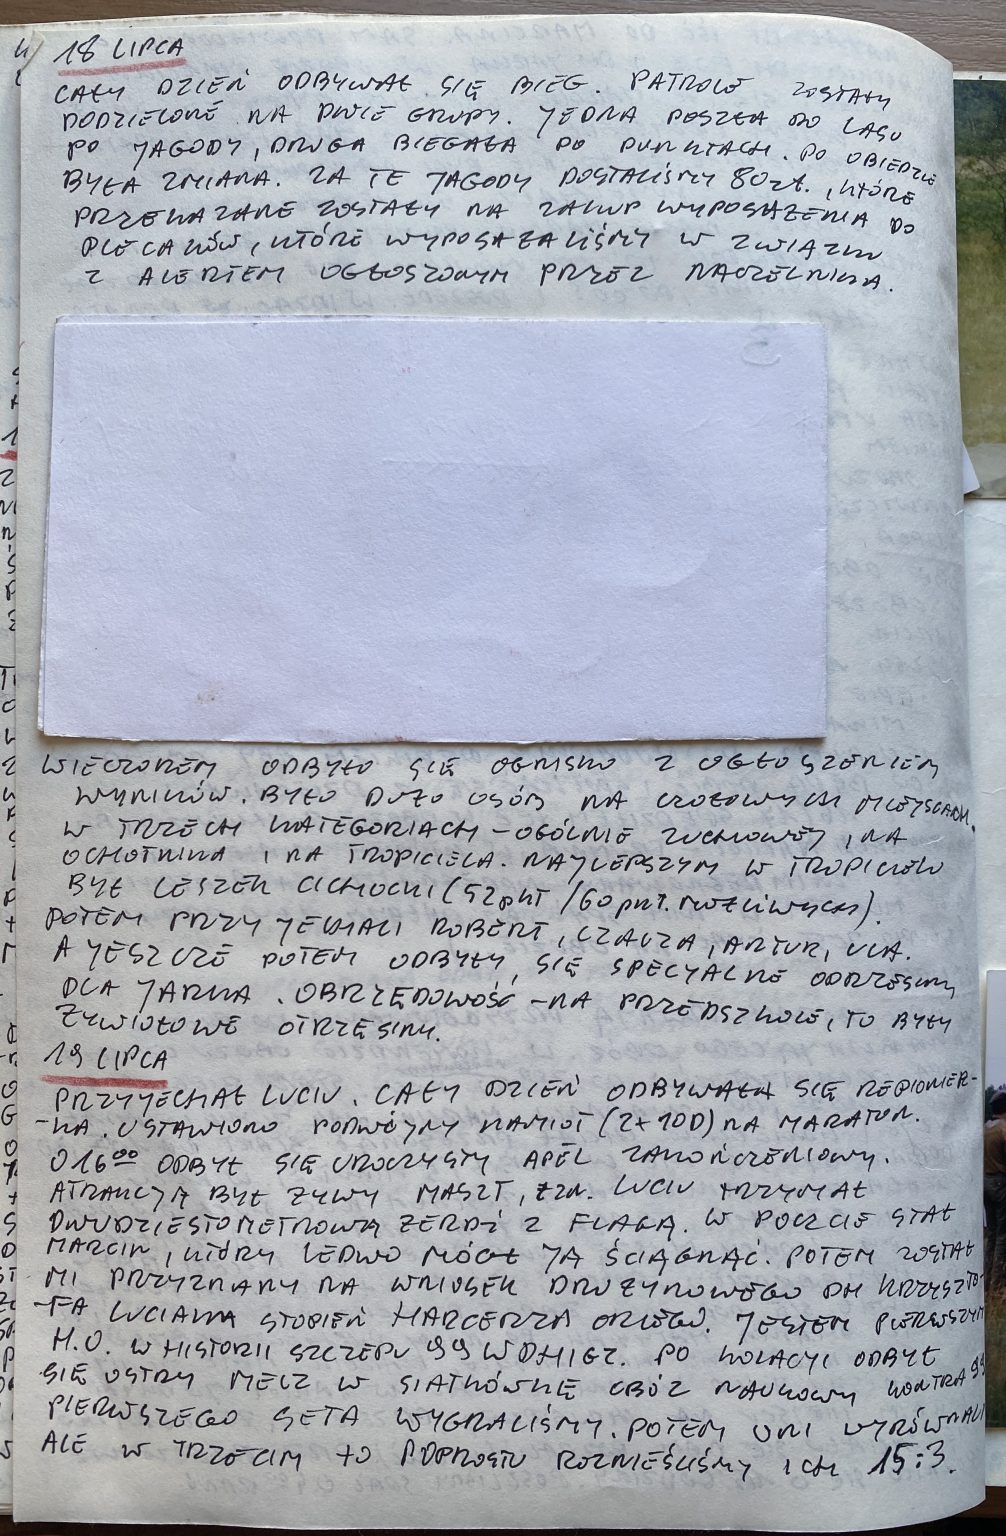 18 LIPCA
CAŁY DZIEŃ ODBYWAŁ SIĘ BIEG. PATROLE ZOSTAŁY
PODZIELONE NA DWIE GRUPY. JEDNA POSZŁA DO LASU
PO JAGODY, DRUGA BIEGAŁA PO PUNKTACH. PO OBIEDZIE
BYŁA ZMIANA. ZA TE JAGODY DOSTALIŚMY 80 zł., KTÓRE
PRZEKAZANE ZOSTAŁY NA ZAKUP WYPOSAŻENIA DO
PLECAKÓW, KTÓRE WYPOSAŻALIŚMY W ZWIĄZKU
Z ALERTEM OGŁOSZONYM PRZEZ NACZELNIKA.
WIECZOREM ODBYŁO SIĘ OGNISKO Z OGŁOSZENIEM
WYNIKÓW. BYŁO DUŻO OSÓB NA CZOŁOWYCH MIEJSCACH.
W TRZECH KATEGORIACH – OGÓLNIE ZUCHOWEJ, NA
OCHOTNIKA I NA TROPICIELA. NAJLEPSZYM W TROPICIELU
BYŁ LESZEK CICHOCKI (52 pkt / 60 pkt. MOŻLIWYCH).
POTEM PRZYJECHALI ROBERT, CZACZA, ARTUR, ULA.
A JESZCZE POTEM ODBYŁY SIĘ SPECJALNE ODRZĘSINY
DLA JARKA. OBRZĘDOWOŚĆ – NA PRZEDSZKOLE, TO BYŁY
ŻYWIOŁOWE OTRZĘSINY.
19 LIPCA
PRZYJECHAŁ LUCIU. CAŁY DZIEŃ ODBYWAŁA SIĘ REPIONIER-
-KA. USTAWIONO PODWÓJNY NAMIOT (2x10D) NA MARATON.
O 16⁰⁰ ODBYŁ SIĘ UROCZYSTY APEL ZAKOŃCZENIOWY.
ATRAKCJĄ BYŁ ŻYWY MASZT, TZN. LUCIU TRZYMAŁ
DWUDZIESTOMETROWĄ ŻERDŹ Z FLAGĄ. W POCZCIE STAŁ
MARCIN, KTÓRY LEDWO MÓGŁ JĄ ŚCIĄGNĄĆ. POTEM ZOSTAŁ
MI PRZYZNANY NA WNIOSEK DRUŻYNOWEGO DH KRZYSZTO-
-FA LUCIANA STOPIEŃ HARCERZA ORLEGO. JESTEM PIERWSZYM
H.O. W HISTORII SZCZEPU 99 WDHIGZ. PO KOLACJI ODBYŁ
SIĘ OSTRY MECZ W SIATKÓWKĘ OBÓZ NAUKOWY KONTRA 99
PIERWSZEGO SETA WYGRALIŚMY. POTEM ONI WYRÓWNALI
ALE W TRZECIM TO POPROSTU ROZNIEŚLIŚMY ICH 15:3.